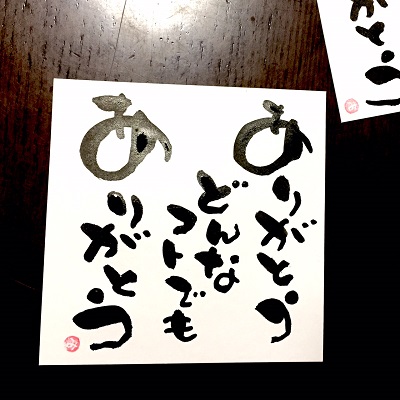 ありがとう
どんな
コトでも
ありがとう
み
がとう